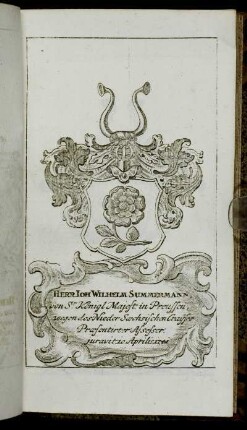 HERR IOH. WILHELM SUMMERMANN
von Sr. Königl. Majest: in Preussen
wegen des Nieder Sächsischen Craÿses
Præsentirter Assessor
juravit 20 Aprilis